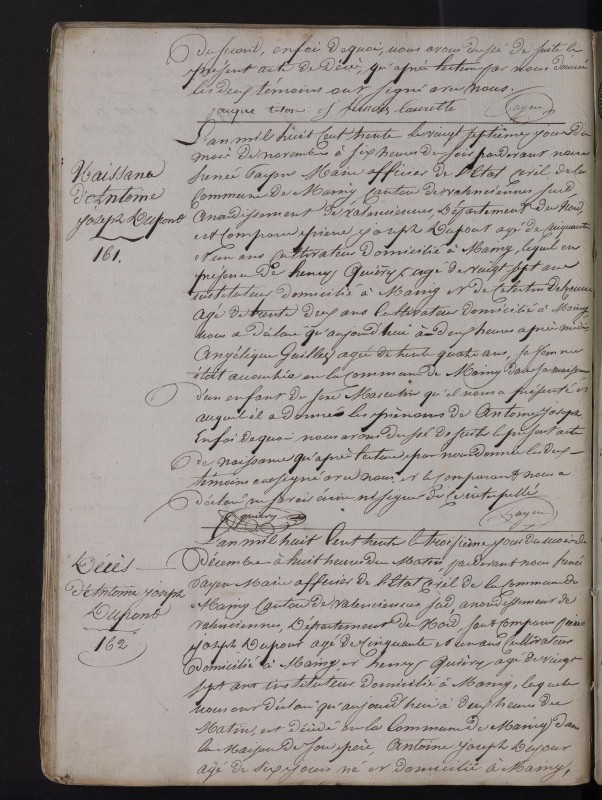 Du second, en foi de quoi, nous avons dressé de suite le
présent acte de Décès, qu'après lecture par nous donnée
les deux témoins ont signé avec nous.
Payen
L'an mil huit cent trente le vingt septième jour du
mois de novembre à six heures du soir pardevant nous
Payen Maire officier de l'Etat Civil de la
Commune de Maing Canton de Valenciennes Sud,
Arrondissement de Valenciennes, Département du Nord,
est Comparu pierre joseph Dupont agé de Cinquante
et un ans Cultivateur domicilié à Maing, lequel en
présence de henry Quiévy agé de vingt sept ans
instituteur domicilié à Maing et de
agé de trente deux ans Cultivateur domicilié à Maing
nous a déclaré qu'aujourd'hui à deux heures après midi,
Angélique Guillez agée de trente quatre ans, sa femme
était accouchée en la commune de Maing dans sa maison
d'un enfant du sexe Masculin qu'il nous a présenté et
auquel il a donné les prénoms de Antoine joseph.
En foi de quoi nous avons dressé de suite le présent acte
de naissance qu'après lecture par nous donnée les deux
témoins ont signé avec nous, et le comparant nous a
déclaré ne savoir écrire ni signer de ce interpellé
Quiévy Payen
Naissance
d'Antoine
joseph Dupont
161.
L'an mil huit Cent trente le troisième jour du mois de
Décembre à huit heures du Matin, pardevant nous
Payen Maire officier de l'Etat Civil de la Commune de
Maing Canton de Valenciennes Sud, arrondissement de
Valenciennes, Département du Nord, sont Comparus pierre
joseph Dupont agé de Cinquante et un ans Cultivateur
domicilié à Maing et henry Quiévy agé de vingt
sept ans instituteur domicilié à Maing, lesquels
nous ont déclaré qu'aujourd'hui à deux heures du
Matin, est décédé en la Commune de Maing dans
la Maison de son père, Antoine joseph Dupont
agé de six jours né et domicilié à Maing,
Décès
d'Antoine joseph
Dupont
162